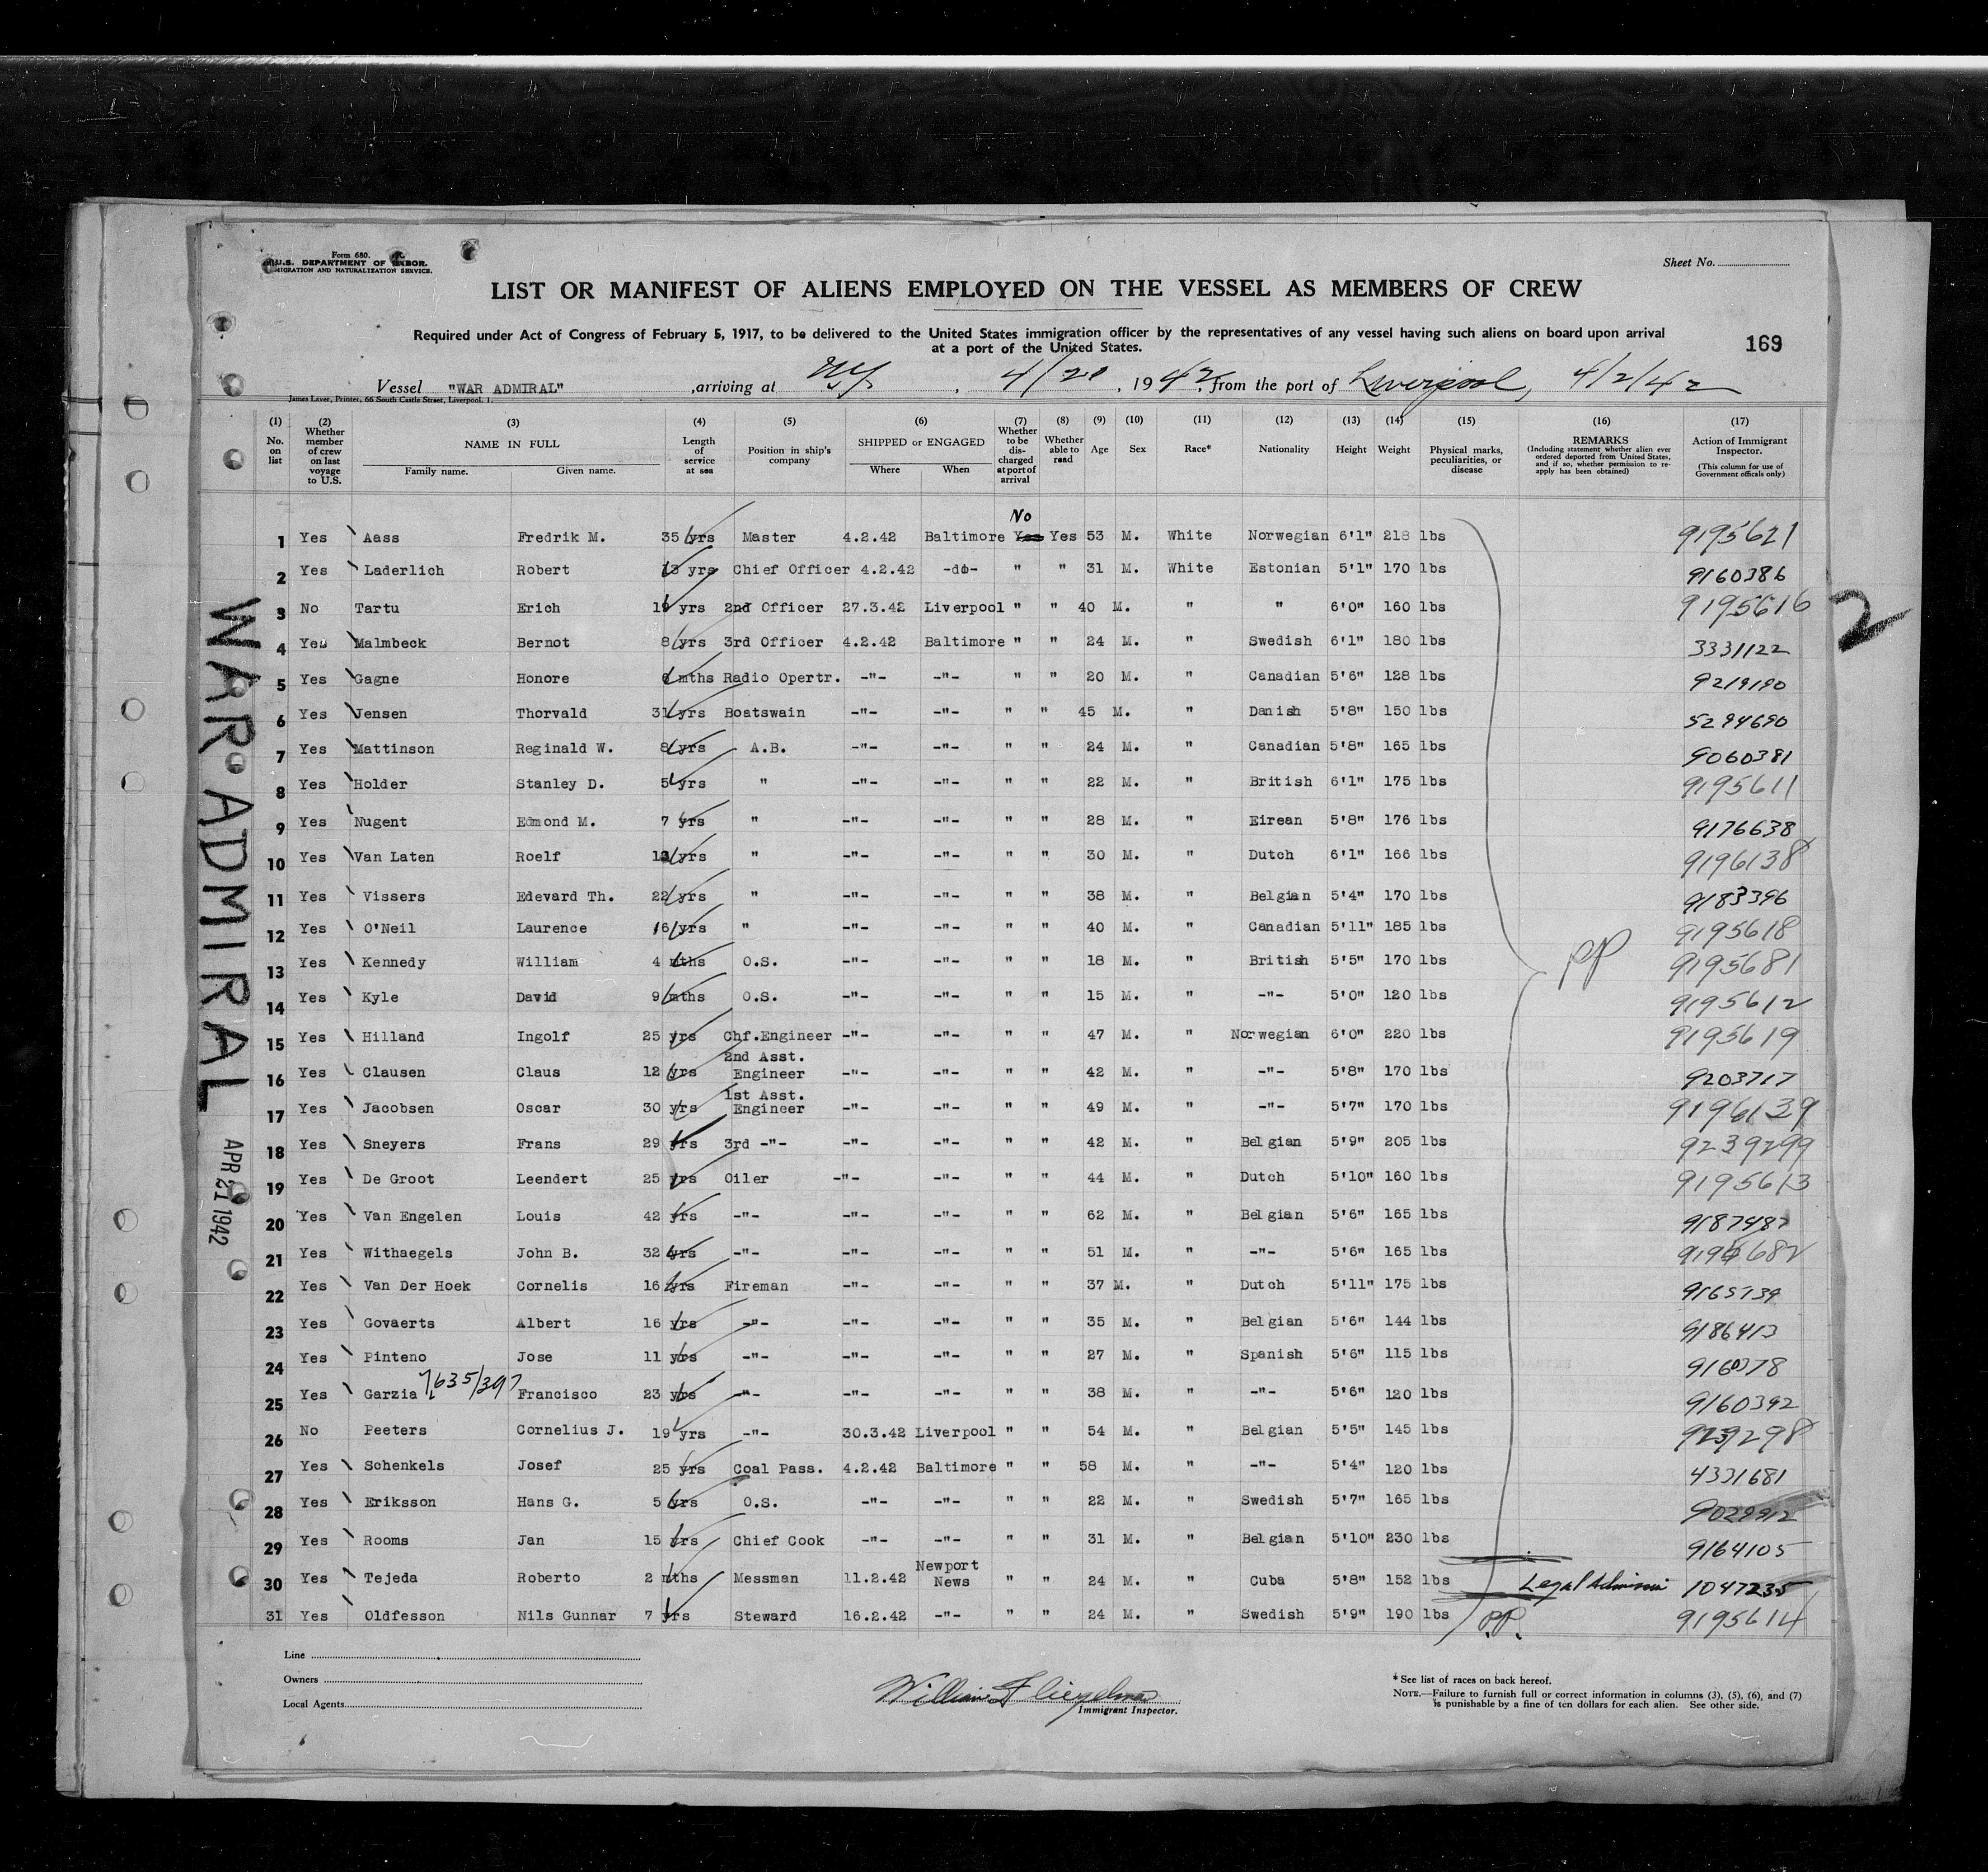 Form 680.
U.S. DEPARTMENT OF LABOR.
IMMIGRATION AND NATURALIZATION SERVICE.
Sheet No.
LIST OR MANIFEST OF ALIENS EMPLOYED ON THE VESSEL AS MEMBERS OF CREW
Required under Act of Congress of February 5, 1917, to be delivered to the United States immigration officer by the representatives of any vessel having such aliens on board upon arrival
at a port of the United States.
169
Vessel "WAR ADMIRAL" , arriving at NY , 4/21 , 1942, from the port of Liverpool, 4/2/42
James Laver, Printer, 66 South Castle Street, Liverpool. 1.
(1) No. on list (2) Whether member of crew on last voyage to U.S. (3) NAME IN FULL Family name. Given name. (4) Length of service at sea (5) Position in ship's company (6) SHIPPED or ENGAGED Where When (7) Whether to be discharged at port of arrival (8) Whether able to read (9) Age (10) Sex (11) Race* (12) Nationality (13) Height (14) Weight (15) Physical marks, peculiarities, or disease (16) REMARKS (Including statement whether alien ever ordered deported from United States, and if so, whether permission to re-apply has been obtained) (17) Action of Immigrant Inspector. (This column for use of Government officals only)
No
1 Yes Aass Fredrik M. 35 yrs Master 4.2.42 Baltimore Yes Yes 53 M. White Norwegian 6'1" 218 lbs 9195621
2 Yes Laderlich Robert 13 yrs Chief Officer 4.2.42 -do- " " 31 M. White Estonian 5'1" 170 lbs 9160386
3 No Tartu Erich 19 yrs 2nd Officer 27.3.42 Liverpool " " 40 M. " " 6'0" 160 lbs 9195616
4 Yes Malmbeck Bernot 8 yrs 3rd Officer 4.2.42 Baltimore " " 24 M. " Swedish 6'1" 180 lbs 3331122
5 Yes Gagne Honore mths Radio Opertr. -"- -"- " " 20 M. " Canadian 5'6" 128 lbs 9219190
6 Yes Jensen Thorvald 31 yrs Boatswain -"- -"- " " 45 M. " Danish 5'8" 150 lbs 5294690
7 Yes Mattinson Reginald W. 8 yrs A.B. -"- -"- " " 24 M. " Canadian 5'8" 165 lbs 9060381
8 Yes Holder Stanley D. 5 yrs " -"- -"- " " 22 M. " British 6'1" 175 lbs 9195611
9 Yes Nugent Edmond M. 7 yrs " -"- -"- " " 28 M. " Eirean 5'8" 176 lbs 9176638
10 Yes Van Laten Roelf yrs " -"- -"- " " 30 M. " Dutch 6'1" 166 lbs 9196138
11 Yes Vissers Edevard Th. 22 yrs " -"- -"- " " 38 M. " Belgian 5'4" 170 lbs 9183396
12 Yes O'Neil Laurence 16 yrs " -"- -"- " " 40 M. " Canadian 5'11" 185 lbs 9195618
13 Yes Kennedy William 4 mths O.S. -"- -"- " " 18 M. " British 5'5" 170 lbs PP 9195681
14 Yes Kyle David 9 mths O.S. -"- -"- " " 15 M. " -"- 5'0" 120 lbs 9195612
15 Yes Hilland Ingolf 25 yrs Chf.Engineer -"- -"- " " 47 M. " Norwegian 6'0" 220 lbs 9195619
16 Yes Clausen Claus 12 yrs 2nd Asst. Engineer -"- -"- " " 42 M. " -"- 5'8" 170 lbs 9203717
17 Yes Jacobsen Oscar 30 yrs 1st Asst. Engineer -"- -"- " " 49 M. " -"- 5'7" 170 lbs 9196139
18 Yes Sneyers Frans 29 yrs 3rd -"- -"- -"- " " 42 M. " Belgian 5'9" 205 lbs 9239299
19 Yes De Groot Leendert 25 yrs Oiler -"- -"- " " 44 M. " Dutch 5'10" 160 lbs 9195613
20 Yes Van Engelen Louis 42 yrs -"- -"- -"- " " 62 M. " Belgian 5'6" 165 lbs 9187487
21 Yes Withaegels John B. 32 yrs -"- -"- -"- " " 51 M. " -"- 5'6" 165 lbs 9195682
22 Yes Van Der Hoek Cornelis 16 yrs Fireman -"- -"- " " 37 M. " Dutch 5'11" 175 lbs 9165739
23 Yes Govaerts Albert 16 yrs -"- -"- -"- " " 35 M. " Belgian 5'6" 144 lbs 9186413
24 Yes Pinteno Jose 11 yrs -"- -"- -"- " " 27 M. " Spanish 5'6" 115 lbs 9160378
25 Yes Garzia 7635/397 Francisco 23 yrs -"- -"- -"- " " 38 M. " -"- 5'6" 120 lbs 9160392
26 No Peeters Cornelius J. 19 yrs -"- 30.3.42 Liverpool " " 54 M. " Belgian 5'5" 145 lbs 9239298
27 Yes Schenkels Josef 25 yrs Coal Pass. 4.2.42 Baltimore " " 58 M. " -"- 5'4" 120 lbs 4331681
28 Yes Eriksson Hans G. 5 yrs O.S. -"- -"- " " 22 M. " Swedish 5'7" 165 lbs 9029912
29 Yes Rooms Jan 15 yrs Chief Cook -"- -"- " " 31 M. " Belgian 5'10" 230 lbs 9164105
30 Yes Tejeda Roberto 2 mths Messman 11.2.42 Newport News " " 24 M. " Cuba 5'8" 152 lbs Legal 1047235
31 Yes Oldfesson Nils Gunnar 7 yrs Steward 16.2.42 -"- " " 24 M. " Swedish 5'9" 190 lbs P.P. 9195614
WAR ADMIRAL
APR 21 1942
2
Line
Owners
Local Agents
William Fliegelman
Immigrant Inspector.
* See list of races on back hereof.
NOTE.—Failure to furnish full or correct information in columns (3), (5), (6), and (7)
is punishable by a fine of ten dollars for each alien. See other side.